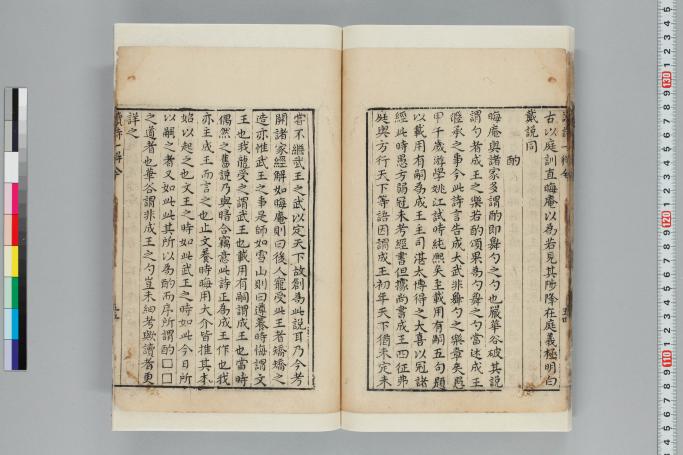 古以庭訓直晦庵以為若見其陟降在庭義極明白
戴說同
酌
晦庵與諸家多謂酌即舞勺之勺也嚴華谷破其說
謂勺者成王之樂若酌頌果為勺舞之勺當述成王
繼承之事今此詩言告成大武非舞勺之樂章矣愚
甲午歲游學姚江試時純熙矣主載用有嗣五句題
以載用有嗣為成王主司湛太博得之大喜以冠諸
經此時愚方弱冠未考經書但據尚書成王四征弗
庭與方行天下等語因謂成王初年天下猶未定未
嘗不繼武王之武以定天下故創為此說耳乃今考
開諸家經解如晦庵則曰後人寵受此王者矯矯之
造亦惟武王之事是師如雪山則曰遵養時晦謂文
王也我龍受之謂武王也載用有嗣謂成王也當時
偶然之舊說乃與暗合竊意此詩正為成王作也我
亦主成王而言之也止文養時晦用大介皆推其本
始以起之也文王之時如此武王之時如此今日所
以嗣之者又如此此其所以為酌而序所謂酌□□
之道者也華谷謂非成王之勺豈未細考與讀者更
詳之
讀詩一得 全